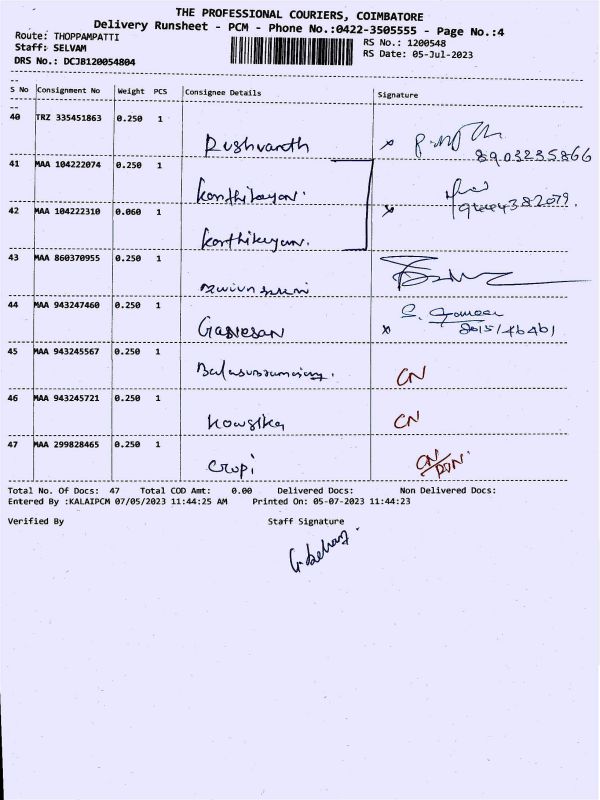 THE PROFESSIONAL COURIERS, COIMBATORE
Delivery Runsheet - PCM - Phone No.:0422-3505555 - Page No.:4
Route: THOPPAMPATTI RS No.: 1200548
Staff: SELVAM RS Date: 05-Jul-2023
DRS No.: DCJB120054804
S No Consignment No Weight PCS Consignee Details Signature
40 TRZ 335451863 0.250 1
Rushvanth x
8903235866
41 MAA 104222074 0.250 1
Karthikeyan.
42 MAA 104222310 0.060 1 x
Karthikeyan.
43 MAA 860370955 0.250 1
44 MAA 943247460 0.250 1
Ganesan x
45 MAA 943245567 0.250 1
CN
46 MAA 943245721 0.250 1
Kowsika CN
47 MAA 299828465 0.250 1
Gopi CN
Total No. Of Docs: 47 Total COD Amt: 0.00 Delivered Docs: Non Delivered Docs:
Entered By :KALAIPCM 07/05/2023 11:44:25 AM Printed On: 05-07-2023 11:44:23
Verified By Staff Signature